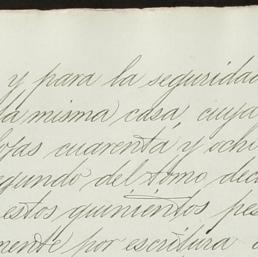 y para la seguridad
la misma casa, cuya
fojas cuarenta y ochi
segundo del tomo dec
estos quinientos pes
mente por escritura